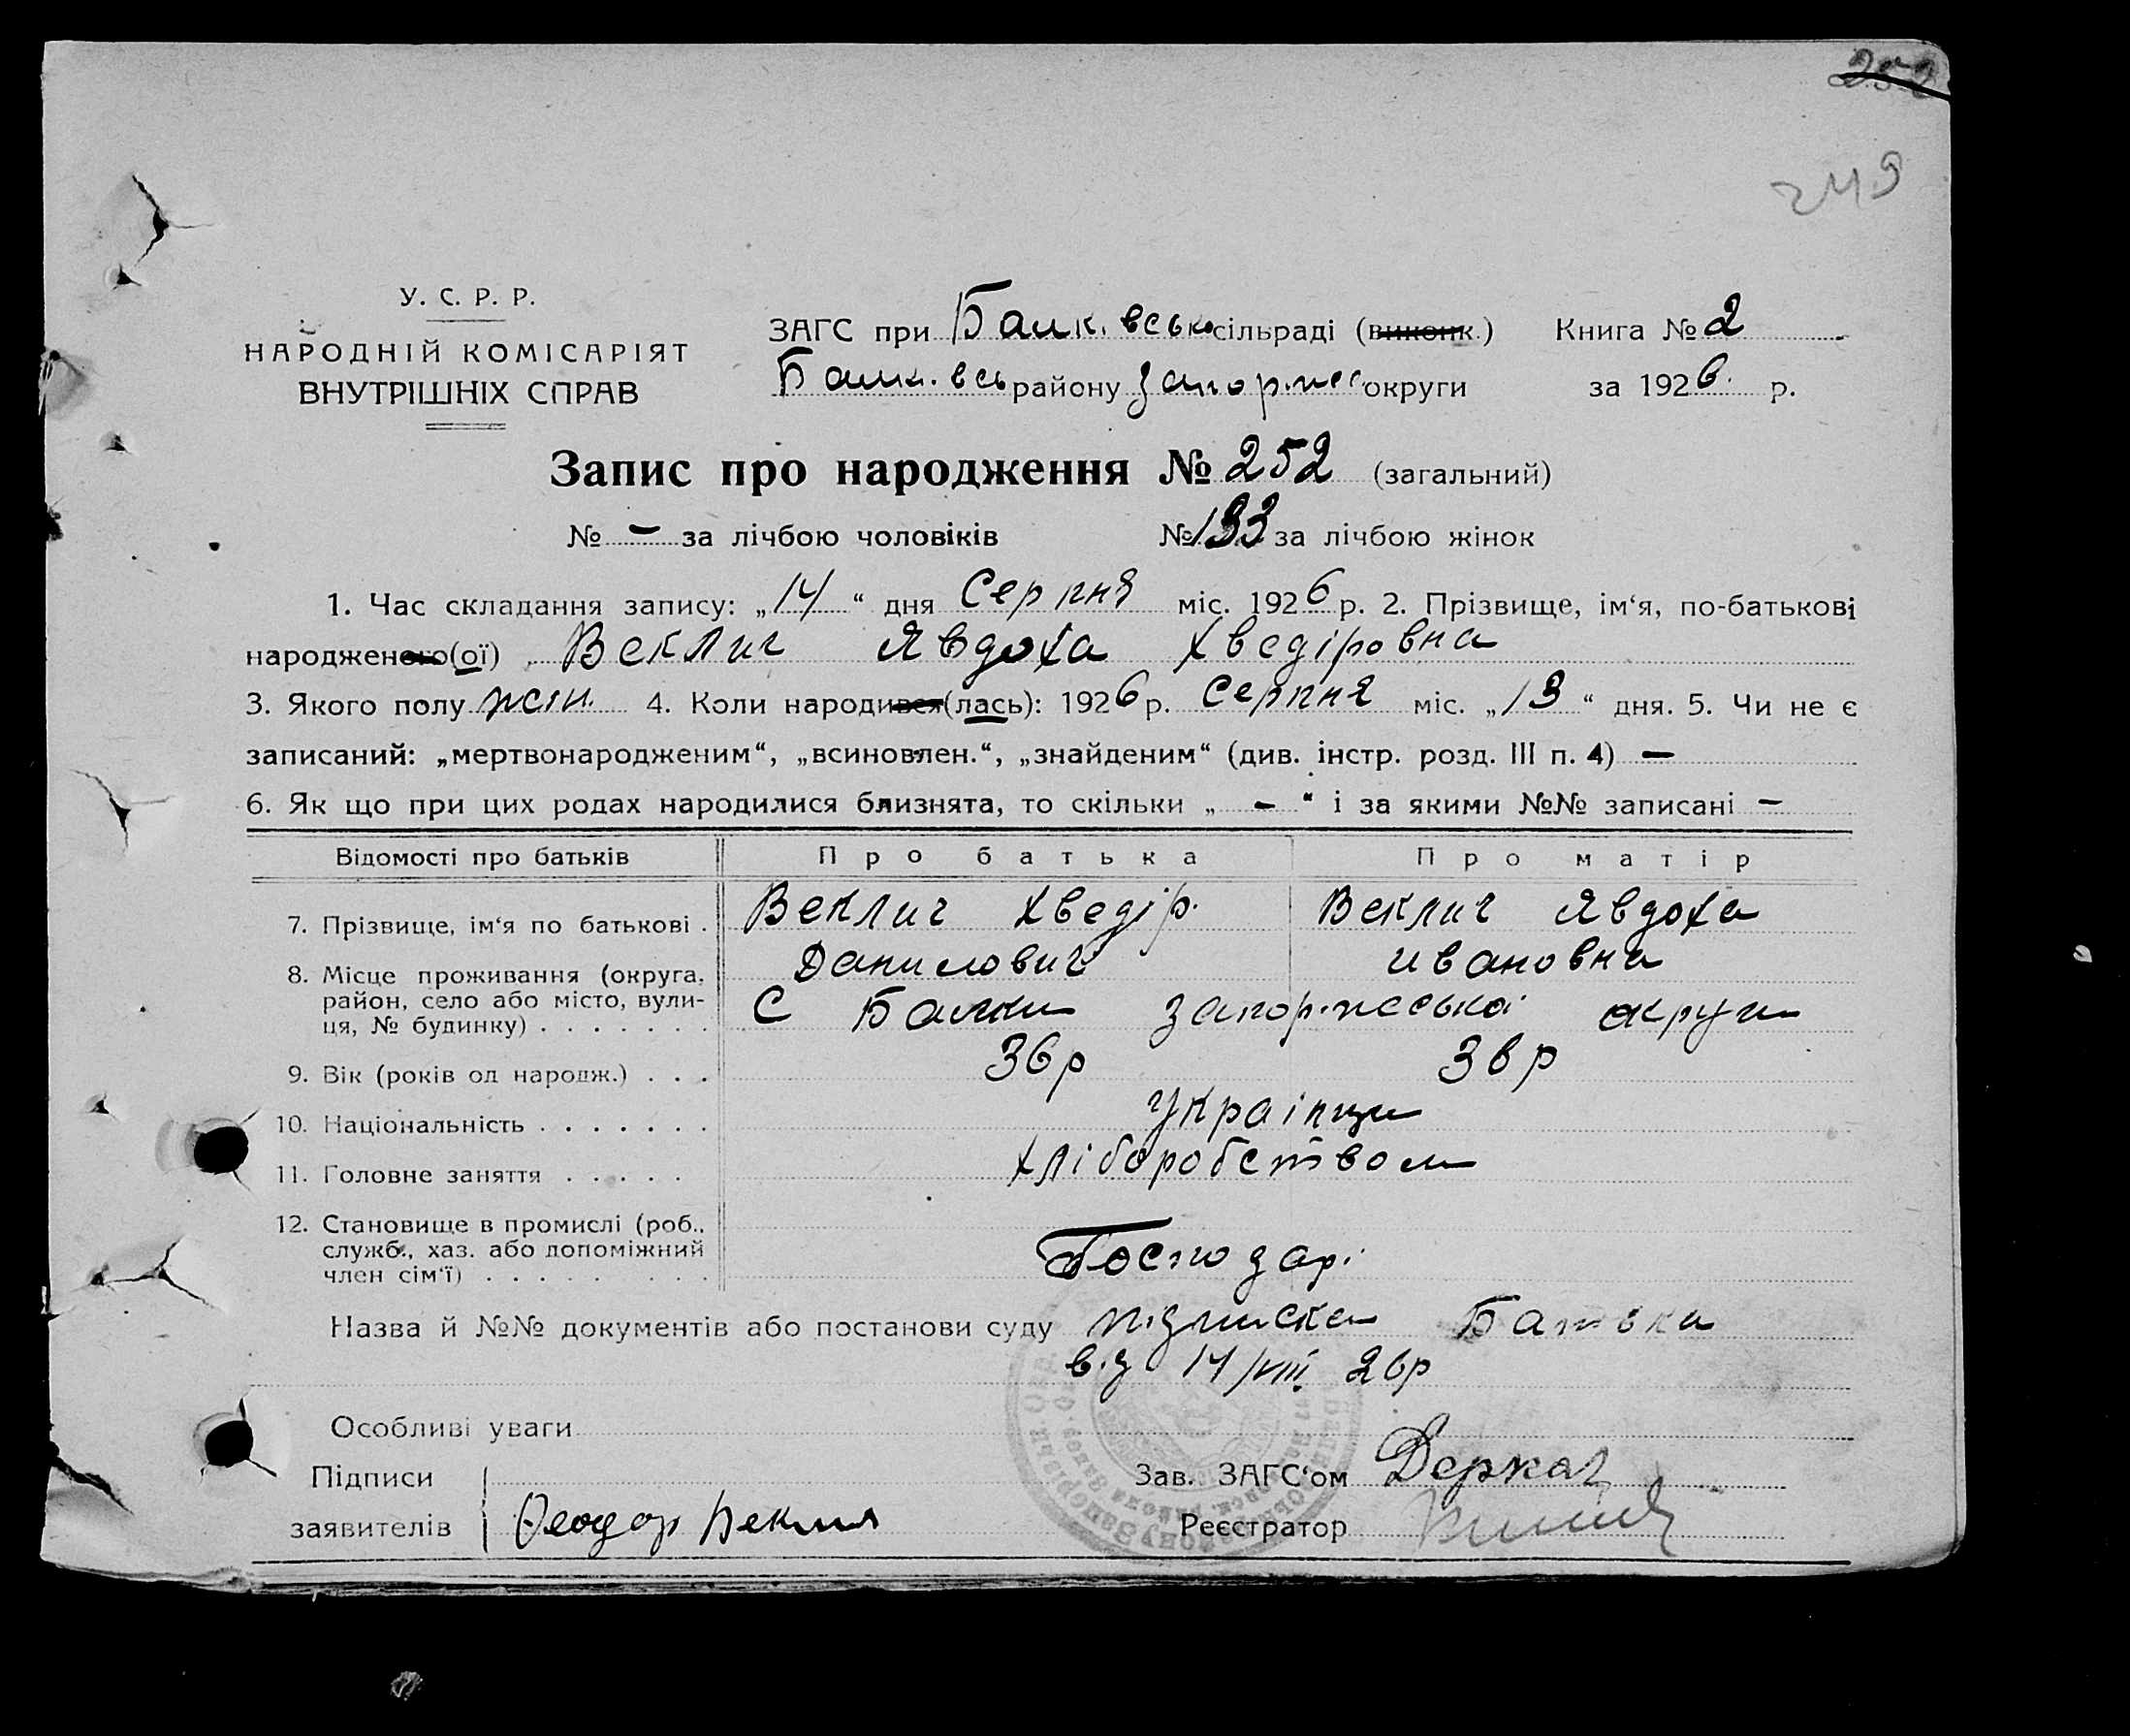 252
249
У. С. Р. Р.
НАРОДНІЙ КОМІСАРІЯТ
ВНУТРІШНІХ СПРАВ
ЗАГС при Балк.всько сільраді (виконк.) Книга № 2
Балк.всь району Запоріжс округи за 1926 р.
Запис про народження № 252 (загальний)
№ - за лічбою чоловіків № 133 за лічбою жінок
1. Час складання запису: „14“ дня Серпня міс. 1926 р. 2. Прізвище, ім‘я, по-батькові
народженого(ої) Веклич Явдоха Хведіровна
3. Якого полу жін. 4. Коли народився(лась): 1926 р. Серпня міс. „13“ дня. 5. Чи не є
записаний: „мертвонародженим“, „всиновлен.“, „знайденим“ (див. інстр. розд. III п. 4) —
6. Як що при цих родах народилися близнята, то скільки „ - “ і за якими №№ записані -
Відомості про батьків Про батька Про матір
7. Прізвище, ім'я по батькові . Веклич Хведір. Веклич Явдоха
Данилович Ивановна
8. Місце проживання (округа, район, село або місто, вули-
ця, № будинку) . . . . . . . С Балки Запоріжська округи
9. Вік (років од народж.) . . . 36р 36р
10. Національність . . . . . . . Українци
11. Головне заняття . . . . . Хліборобством
12. Становище в промислі (роб.,
служб., хаз. або допоміжний
член сім‘ї) . . . . . . . . . Господарі
Назва й №№ документів або постанови суду підписка Батька
від 14/VIII 26р
Особливі уваги
Підписи Зав. ЗАГС‘ом Деркач
заявителів Феодор Веклич Реєстратор